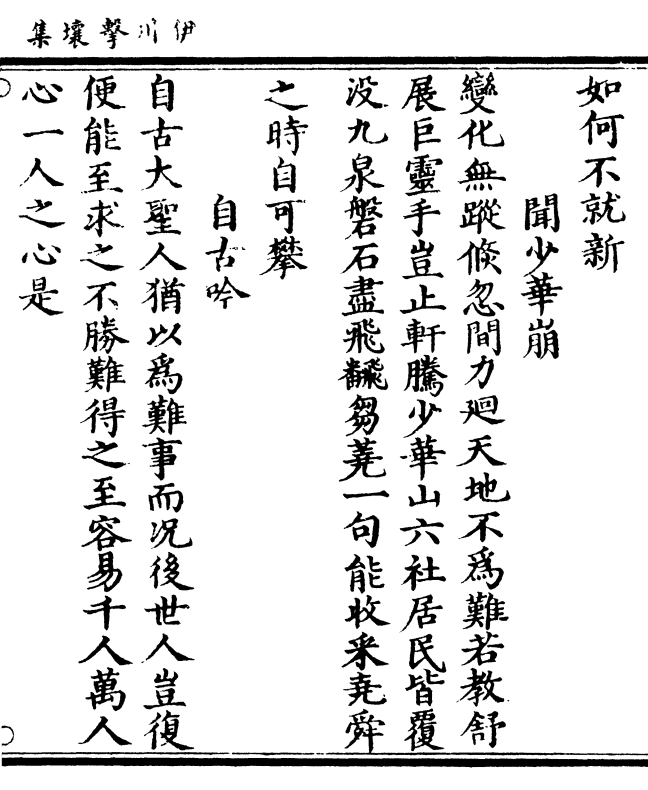 伊川擊壤集
如何不就新
聞少華崩
變化無蹤倐忽間力廻天地不爲難若教舒
展巨靈手豈止軒騰少華山六社居民皆覆
没九泉磐石盡飛飜芻蕘一句能收采堯舜
之時自可攀
自古吟
自古大聖人猶以爲難事而况後世人豈復
便能至求之不勝難得之至容易千人萬人
心一人之心是